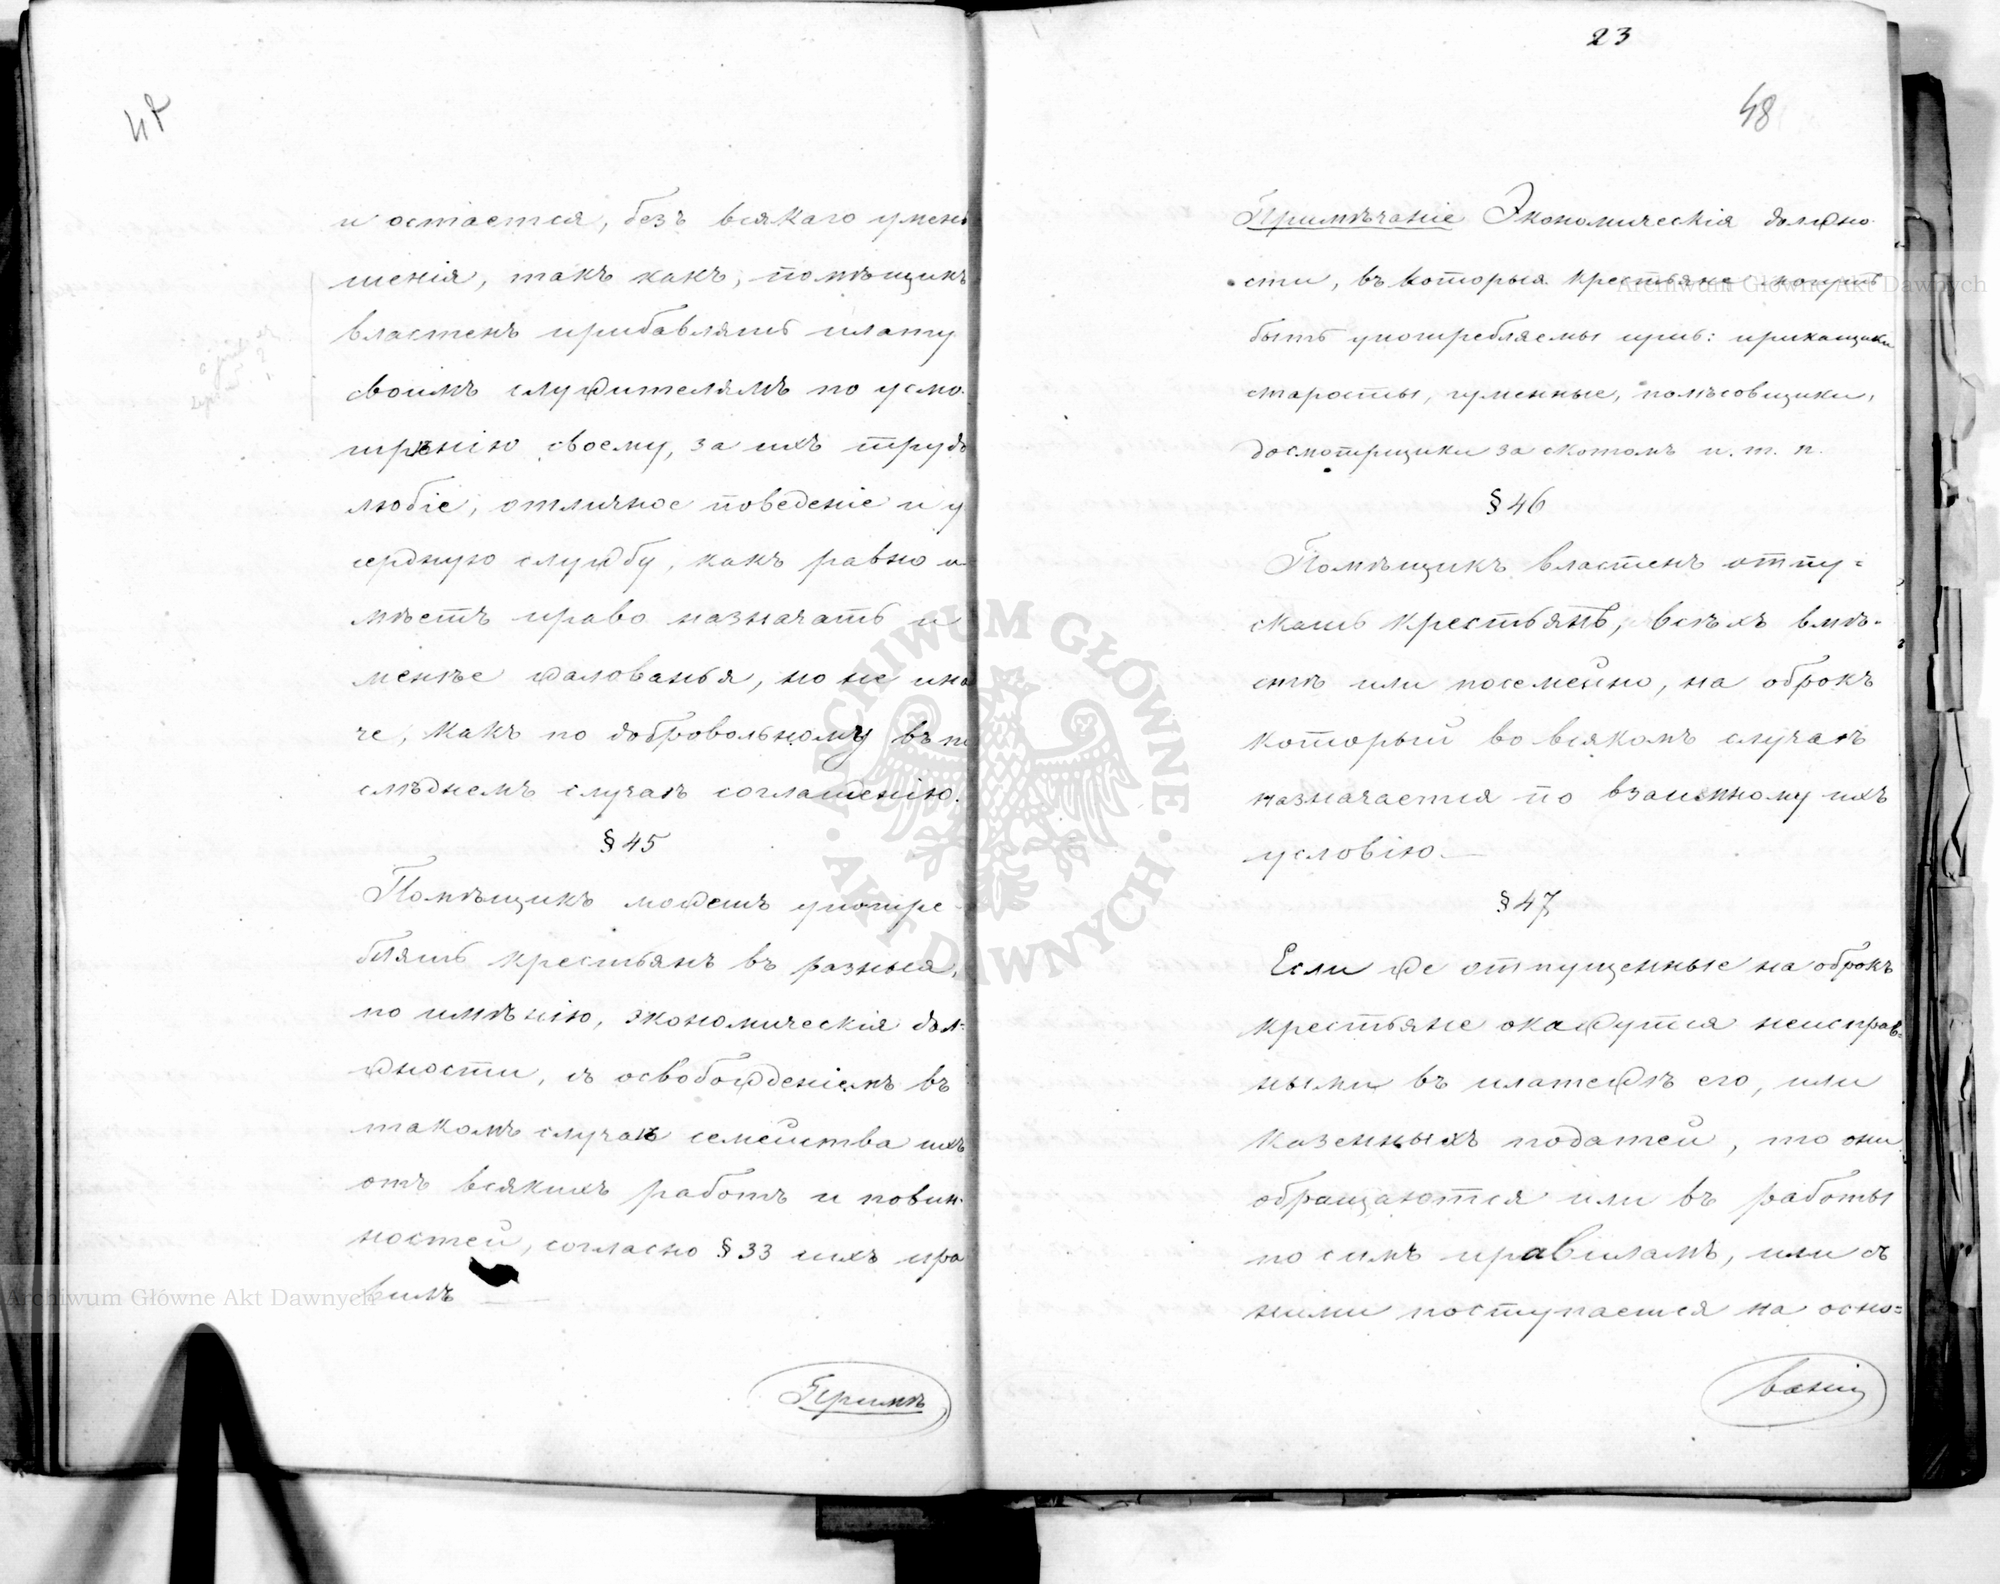 47
и остается, безъ всякаго умень
шенія, такъ какъ, помѣщикъ
властенъ прибавлять плату
своимъ служителямъ по усмо-
трѣнію своему, за ихъ трудо
любіе, отличное поведеніе и у
сердную службу, какъ равно и
мѣетъ право назначать и
менѣе жалованья, но не ина
че, какъ по добровольному въ по
слѣднемъ случаѣ соглашенію.
§ 45
Помѣщикъ можетъ употре
блять крестьянъ въ разныя,
по имѣнію, экономическія дол-
жности, съ освобожденіемъ въ
такомъ случаѣ семейства ихъ
отъ всякихъ работъ и повин-
ностей, согласно § 33 сихъ пра
вилъ —
Примѣ
23
48
Примѣчаніе Экономическія должно
сти, въ которыя крестьяне могутъ
быть употребляемы суть: прикащики
старосты, гуменные, полѣсовщики,
досмотрщики за скотомъ и. т. п.
§ 46
Помѣщикъ властенъ отпу-
скать крестьянъ, всѣхъ вмѣ-
стѣ или посемейно, на оброкъ
который во всякомъ случаѣ
назначается по взаимному ихъ
условію. —
§ 47
Если же отпущенные на оброкъ
крестьяне окажутся неисправ-
ными въ платежѣ его, или
казенныхъ податей, то они
обращаются или въ работы
по симъ правиламъ, или съ
ними поступается на осно=
ваніи
Archiwum Główne Akt Dawnych
Archiwum Główne Akt Dawnych
ARCHIWUM GŁÓWNE · AKT DAWNYCH ·